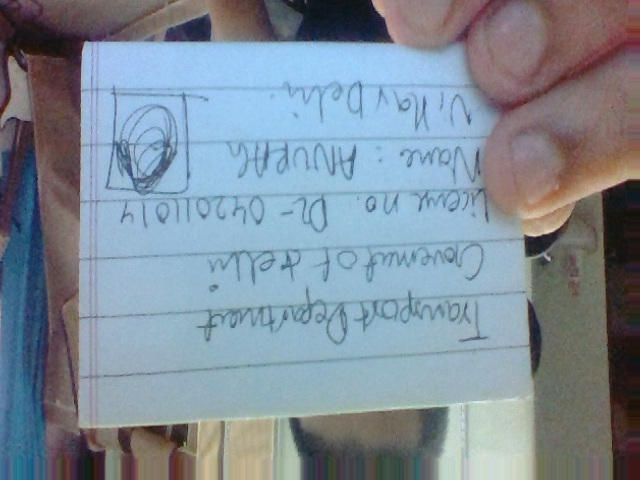 Transport Department
Goverment of delhi
Licence no. DL-042011014
Name : ANURAG
Vihar Delhi.